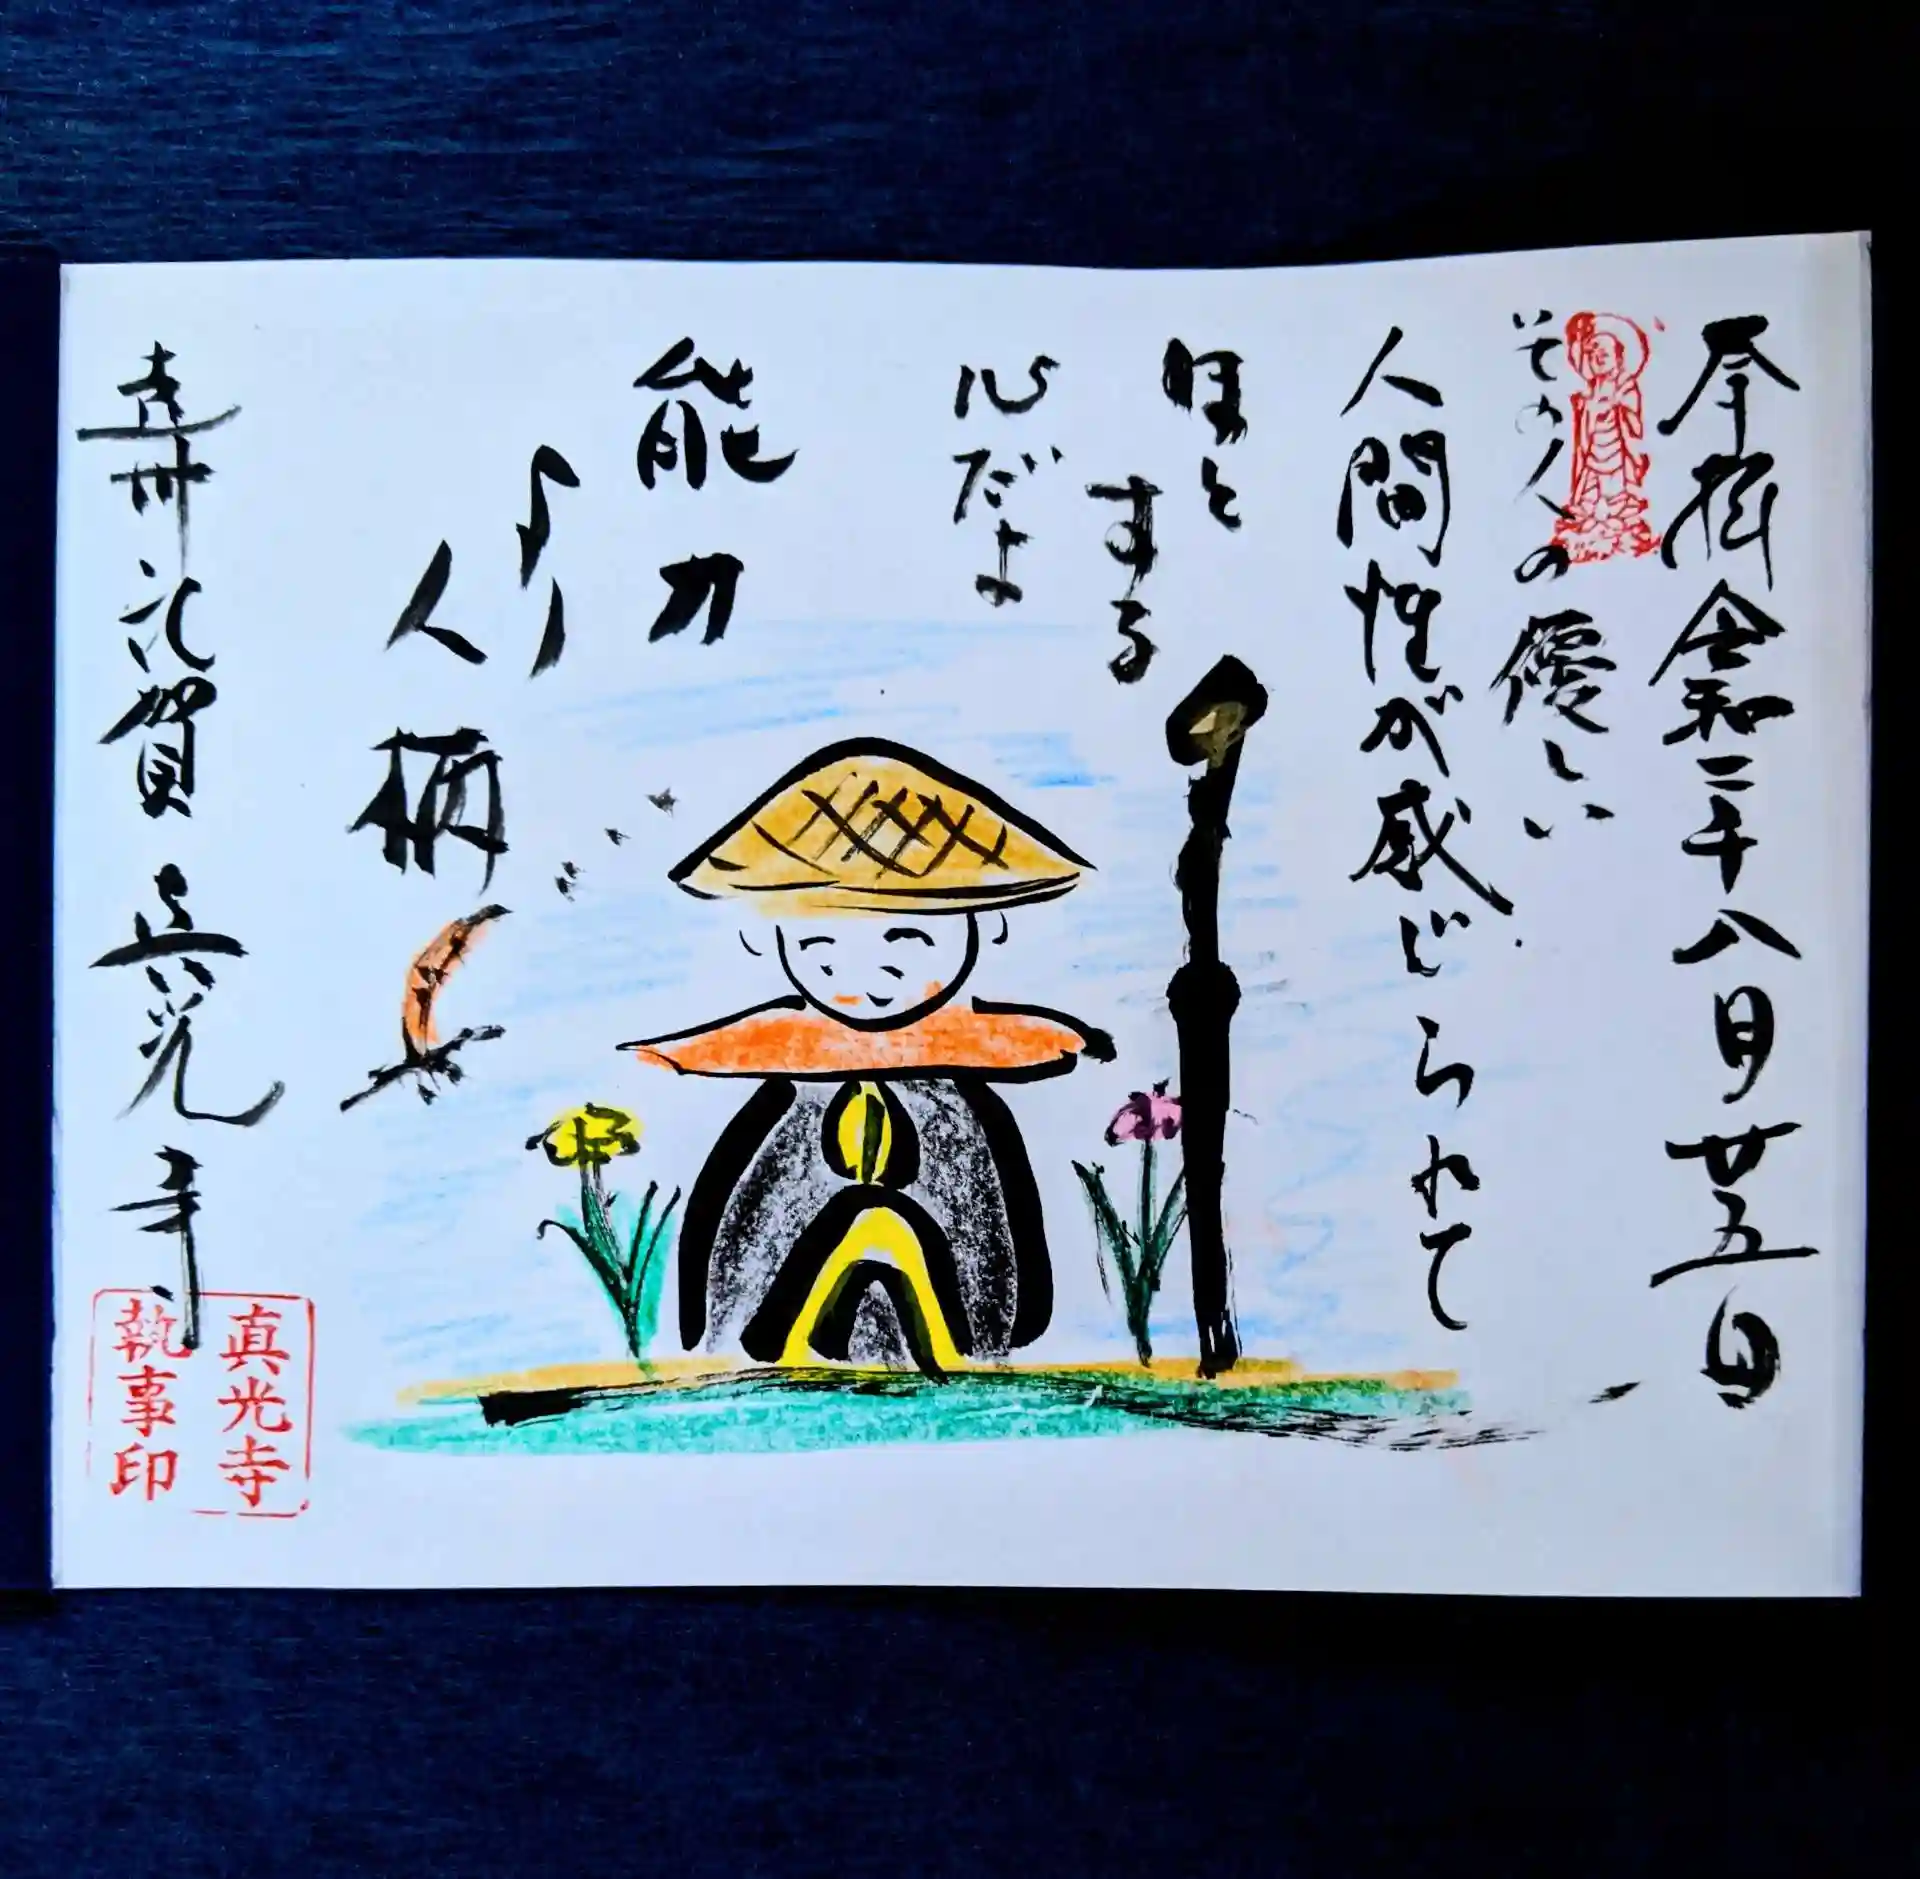 奉拝 令和二年八月廿五日
その人の優しい
人間性が感じられて
ほっと
する
心だよ
能力
より
人柄
賀 真光寺
真光寺
執事印